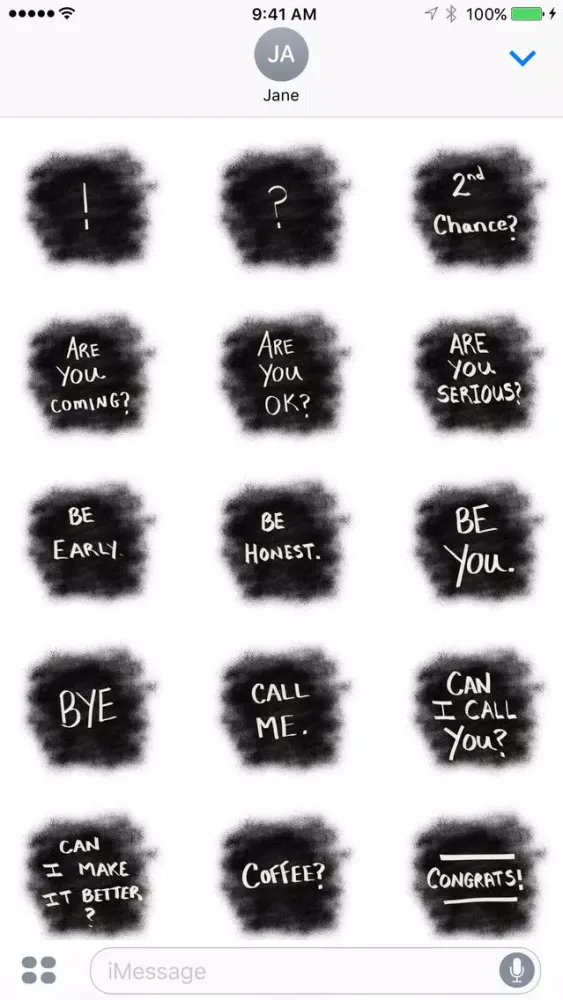 9:41 AM
100%
JA
Jane
!
?
2nd
Chance?
ARE
YOU
COMING?
ARE
YOU
OK?
ARE
YOU
SERIOUS?
BE
EARLY.
BE
HONEST.
BE
YOU.
BYE
CALL
ME.
CAN
I CALL
YOU?
CAN
I MAKE
IT BETTER
?
COFFEE?
CONGRATS!
iMessage